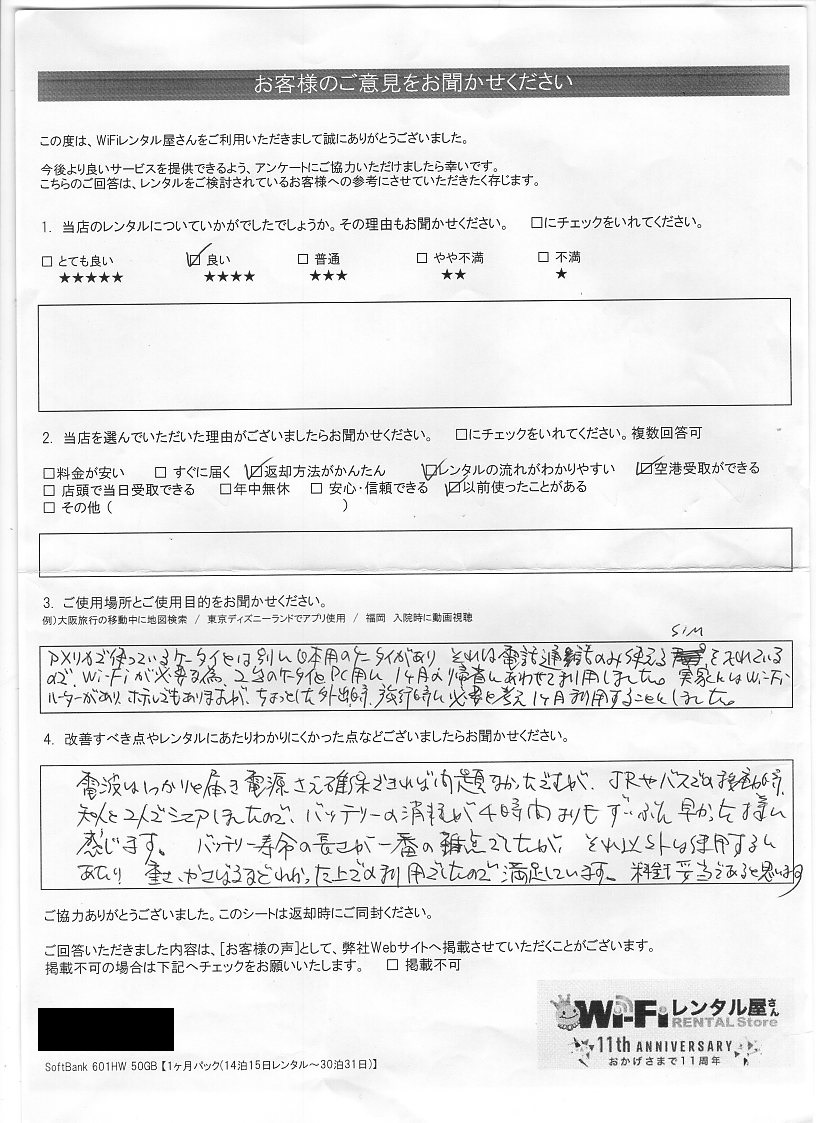 お客様のご意見をお聞かせください
この度は、WiFiレンタル屋さんをご利用いただきまして誠にありがとうございました。
今後より良いサービスを提供できるよう、アンケートにご協力いただけましたら幸いです。
こちらのご回答は、レンタルをご検討されているお客様への参考にさせていただきたく存じます。
1. 当店のレンタルについていかがでしたでしょうか。その理由もお聞かせください。 □にチェックをいれてください。
□ とても良い ☑ 良い □ 普通 □ やや不満 □ 不満
★★★★★ ★★★★ ★★★ ★★ ★
2. 当店を選んでいただいた理由がございましたらお聞かせください。 □にチェックをいれてください。複数回答可
□料金が安い □ すぐに届く ☑返却方法がかんたん ☑レンタルの流れがわかりやすい ☑空港受取ができる
□ 店頭で当日受取できる □年中無休 □ 安心・信頼できる ☑以前使ったことがある
□ その他( )
3. ご使用場所とご使用目的をお聞かせください。
例)大阪旅行の移動中に地図検索 / 東京ディズニーランドでアプリ使用 / 福岡 入院時に動画視聴
SiM
アメリカで使っているケータイとは別に日本用のケータイがあり それは電話通話のみ使える を入れている
ので、Wi-Fiが必要な為、2台のケータイとPC用に 1ヶ月の帰省にあわせて利用しました。実家にはWi-Fi
ルーターがあり、ホテルでもありますが、ちょっとした外出時、旅行時に必要と考え1ヶ月利用することにしました。
4. 改善すべき点やレンタルにあたりわかりにくかった点などございましたらお聞かせください。
電波はしっかりと届き電源さえ確保できれば問題なかったですが、JRやバスでの移動時、
知人と2人でシェアしましたので、バッテリーの消耗が4時間よりもずいぶん早かった様に
感じます。 バッテリー寿命の長さが一番の難点でしたが、それ以外は使用するに
あたり 重さ、かさばるなどわかった上での利用でしたので満足しています。料金も妥当であると思います
ご協力ありがとうございました。このシートは返却時にご同封ください。
ご回答いただきました内容は、[お客様の声]として、弊社Webサイトへ掲載させていただくことがございます。
掲載不可の場合は下記へチェックをお願いいたします。 □ 掲載不可
Wi-Fiレンタル屋さん
RENTAL Store
11th ANNIVERSARY
おかげさまで11周年
SoftBank 601HW 50GB【1ヶ月パック(14泊15日レンタル～30泊31日)】